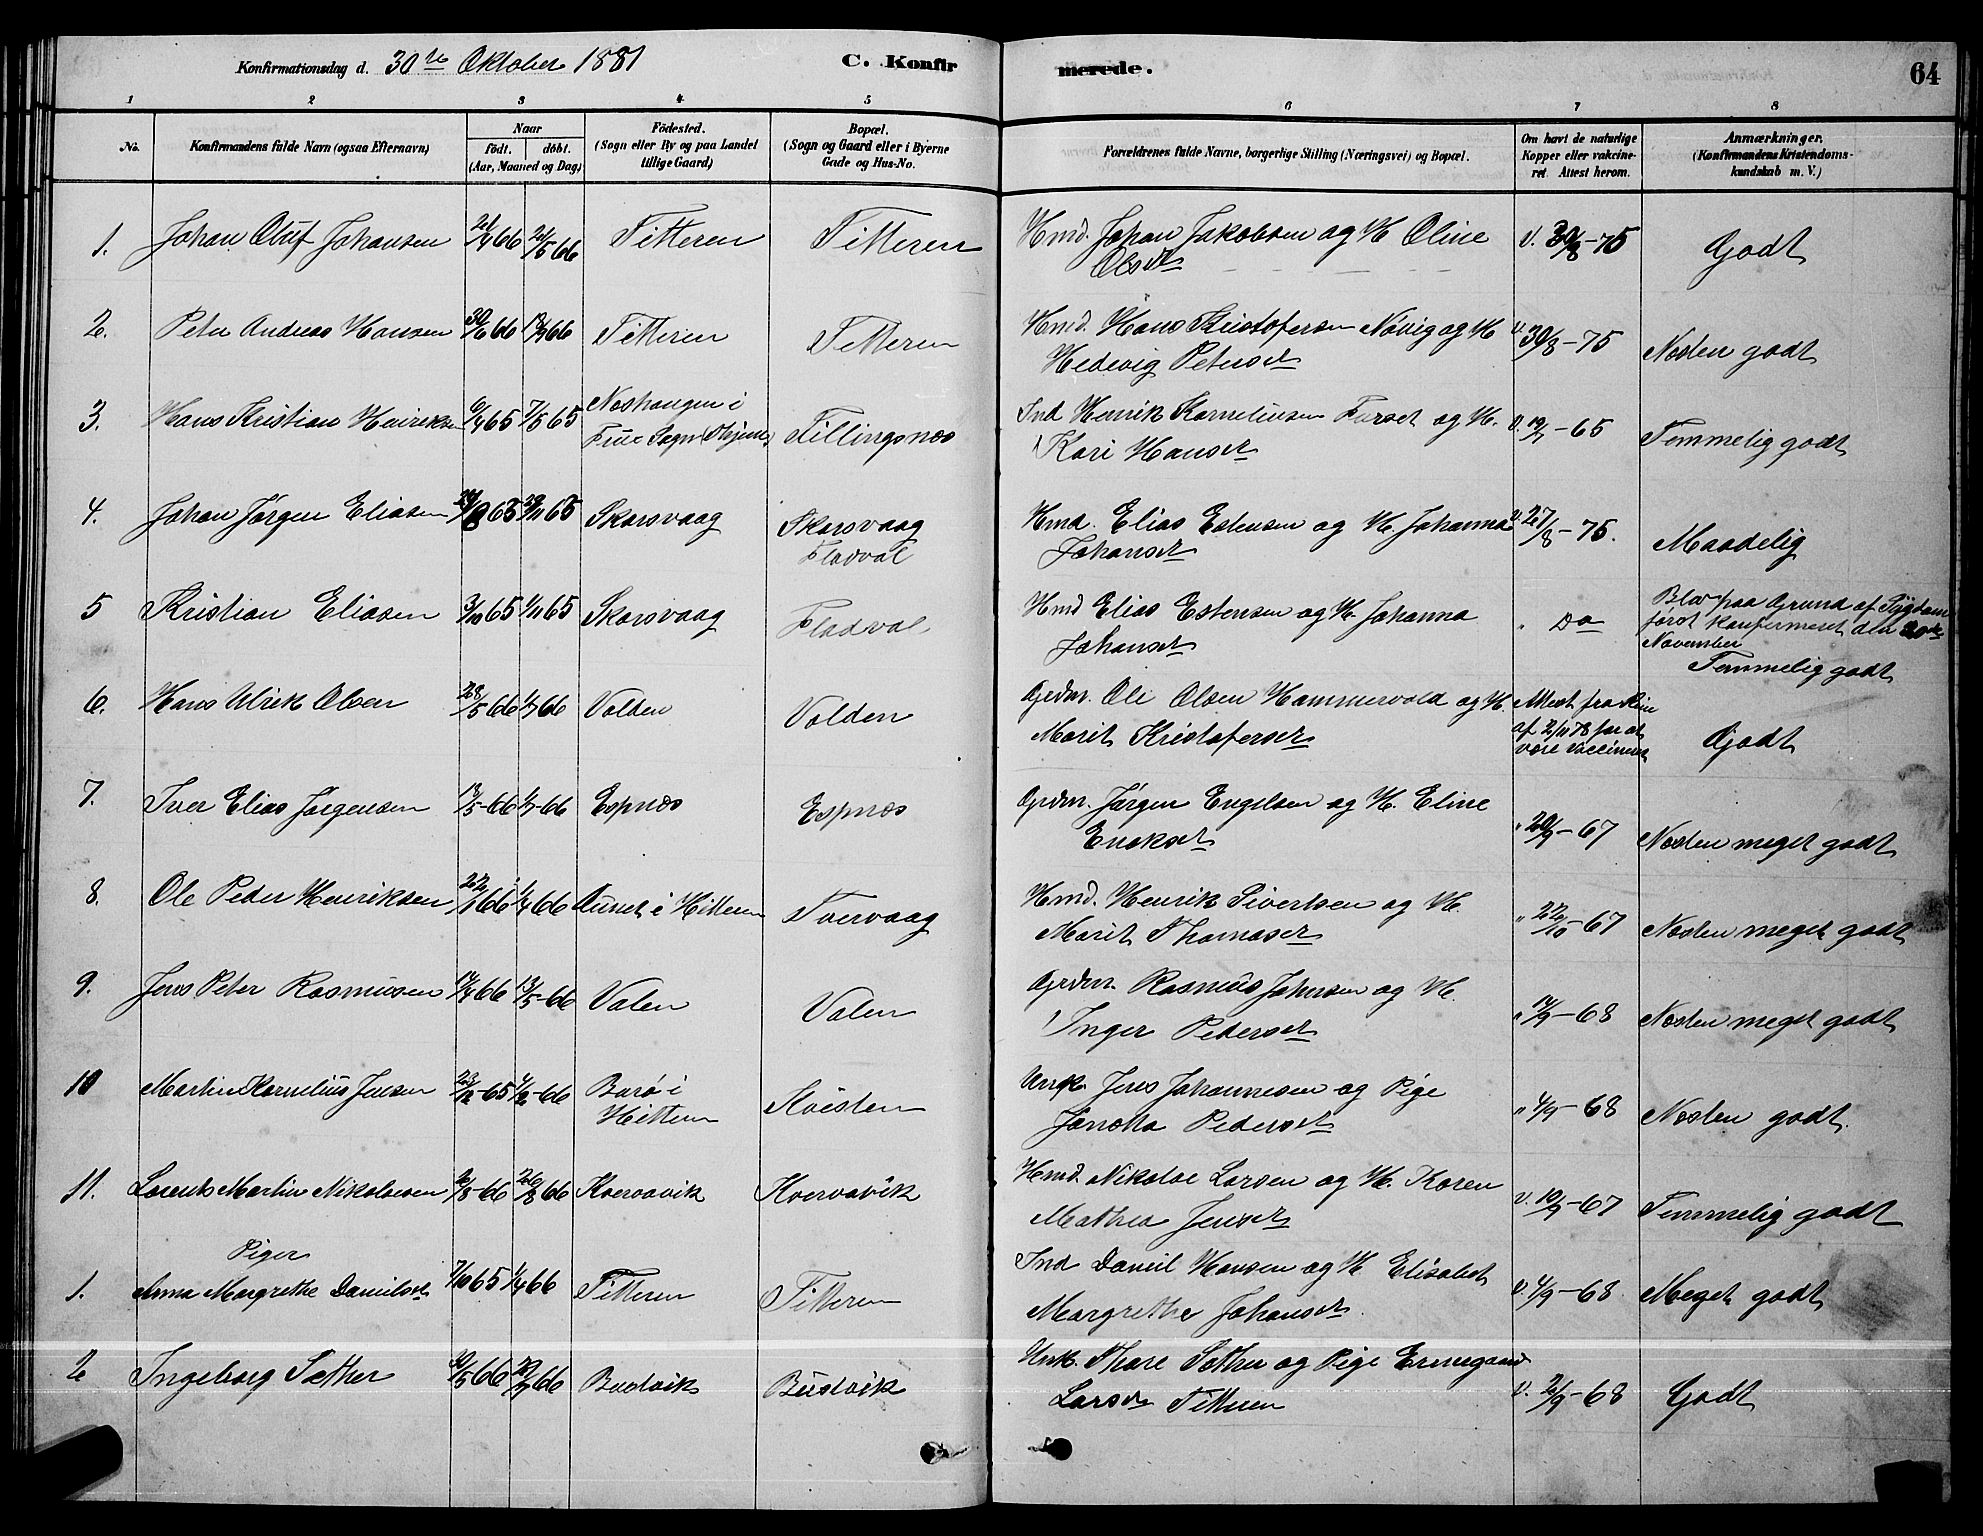 Konfirmationsdag d. 30te Oktober 1881 C. Konfirmerede. 64
1 2 3 4 5 6 7 8
No. Konfirmandens fulde Navn (ogsaa Efternavn) Naar födt. döbt. (Aar, Maaned og Dag) Födested. (Sogn eller By og paa Landet tillige Gaard) Bopæl. (Sogn og Gaard eller i Byerne Gade og Hus-No. Forældrenes fulde Navne, borgerlige Stilling (Næringsvei) og Bopæl. Om havt de naturlige Kopper eller vakcineret. Attest herom. Anmærkninger. (Konfirmandens Kristendomskundskab m. V.)
1. Johan Oluf Johansen 21/4 66 21/5 66 Titteren Titteren Hmd. Johan Jakobsen og H. Oline Olsdt V. 30/8-75 Godt
2. Peter Andreas Hansen 30/6 66 Titteren Titteren Hmd. Hans Kristofersen Növig og H. Hedevig Petersdt V. 30/8-75 Næsten godt
3. Hans Kristian Henriksen 6/4 65 7/5 65 Næshaugen i Frue Sogn Tillingsnæs Ind Henrik Korneliusen Furset og H. Kari Hansdt V. 19/7-65 Temmelig godt
4. Johan Jörgen Eliasen 65 29/11 65 Skarsvaag Skarsvaag Fladval Hmd. Elias Estensen og H. Johanna Johansdt V. 27/8-75. Maadelig
5 Kristian Eliasen 3/10 65 1/11 65 Skarsvaag Fladval Hmd Elias Estensen og H. Johanna Johansdt " Do Blev paa Grund af Sygdom först konfirmeret den 20de November Temmelig godt
6. Hans Ulrik Olsen 28/5 66 1/7 66 Volden Volden Grdm. Ole Olsen Hammervold og H. Marit Kristofersdt Attest fra af 2/11 78 for at være vaccineret Godt
7. Iver Elias Jörgensen 13/5-66 1/7-66 Espnæs Espnæs Grdm. Jörgen Engelsen og H. Eline Enoksdt " 20/9-67 Næsten meget godt
8. Ole Peder Henriksen 66 1/7 66 Aunet i Hitteren Tvervaag Hmd. Henrik Sivertsen og H. Marit Thomasdt " 22/10-67 Næsten meget godt
9. Jens Peter Rasmusen 14/4 66 13/5-66 Valen Valen Grdm. Rasmus Johnsen og H. Inger Pedersdt " 14/9-68 Næsten meget godt
10 Martin Kornelius Jensen 23/12-65 4/2-66 Barö i Hitteren Uægk. Jens Johannesen og Pige Pedersdt " 4/9-68 Næsten godt.
11. Lorents Martin Nikolaisen 2/8-66 26/8 66 Kvervavik Kvervavik Hmd. Nikolai Larsen og H. Karen Mathea Jensdt V. 10/9-67 Temmelig godt
Piger
1. Anna Margrethe Danielsdt 7/10 65 1/4 66 Titteren Titteren Ind Daniel Hansen og H. Elisabet Margrethe Johansdt. V. 4/9-68 Meget godt
2 Ingeborg Sæther 66 66 Badvik Budvik Uægk. Thore Sæther og Pige Larsdt Titteren V. 2/9-68 Godt